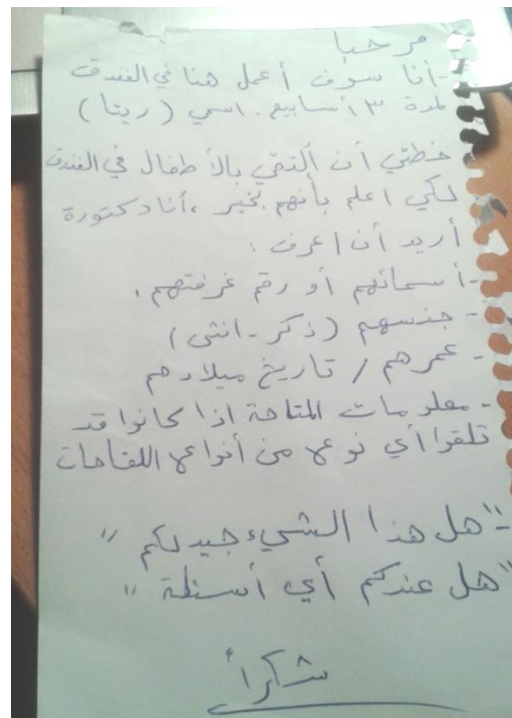 مرحبا
-أنا سوف أعمل هنا في الفندق
لمدة ٣ أسابيع. اسمي (ريتا)
خطتي أن ألتقي بالأطفال في الفندق
لكي اعلم بأنهم بخير ، أنا دكتورة
أريد أن اعرف :
-أسمائهم أو رقم غرفتهم.
- جنسهم (ذكر - انثى)
- عمرهم / تاريخ ميلادهم
- معلومات المتاحة اذا كانوا قد
تلقوا أي نوع من أنواع اللقاحات
-"هل هذا الشيء جيد لكم"
"هل عندكم أي أسئلة"
شكراً